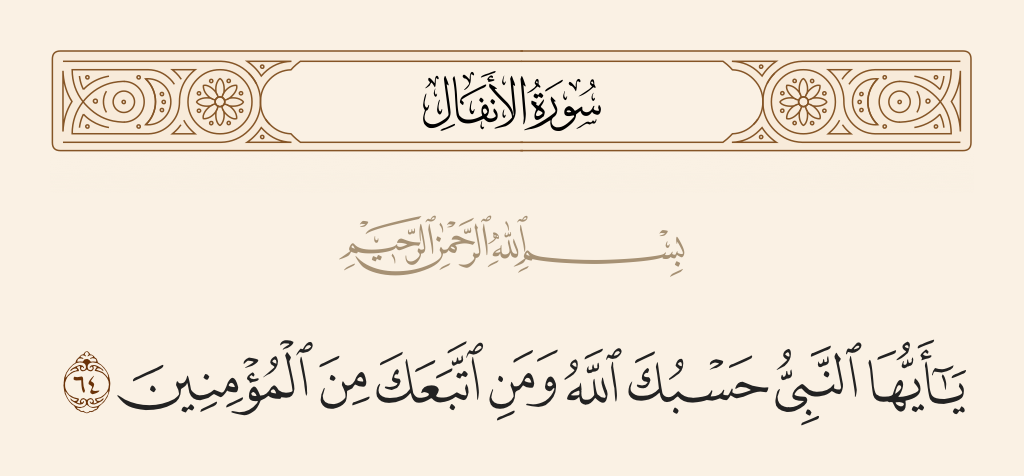 سُورَةُ الأَنفَالِ
بِسْمِ ٱللَّهِ ٱلرَّحْمَٰنِ ٱلرَّحِيمِ
يَٰٓأَيُّهَا ٱلنَّبِىُّ حَسْبُكَ ٱللَّهُ وَمَنِ ٱتَّبَعَكَ مِنَ ٱلْمُؤْمِنِينَ ٦٤